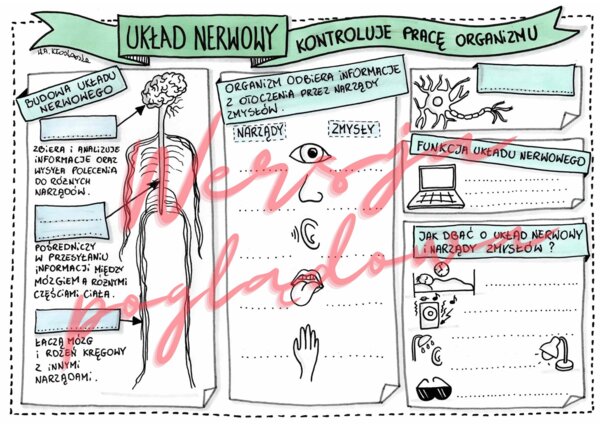 UKŁAD NERWOWY KONTROLUJE PRACĘ ORGANIZMU
BUDOWA UKŁADU
NERWOWEGO
ZBIERA I ANALIZUJE
INFORMACJE ORAZ
WYSYŁA POLECENIA
DO RÓŻNYCH
NARZĄDÓW.
POŚREDNICZY
W PRZESYŁANIU
INFORMACJI MIĘDZY
MÓZGIEM A RÓŻNYMI
CZĘŚCIAMI CIAŁA.
ŁĄCZĄ MÓZG
I RDZEŃ KRĘGOWY
Z INNYMI
NARZĄDAMI.
ORGANIZM ODBIERA INFORMACJE
Z OTOCZENIA PRZEZ NARZĄDY
ZMYSŁÓW.
NARZĄDY ZMYSŁY
FUNKCJA UKŁADU NERWOWEGO
JAK DBAĆ O UKŁAD NERWOWY
I NARZĄDY ZMYSŁÓW?
Wersja
poglądowa